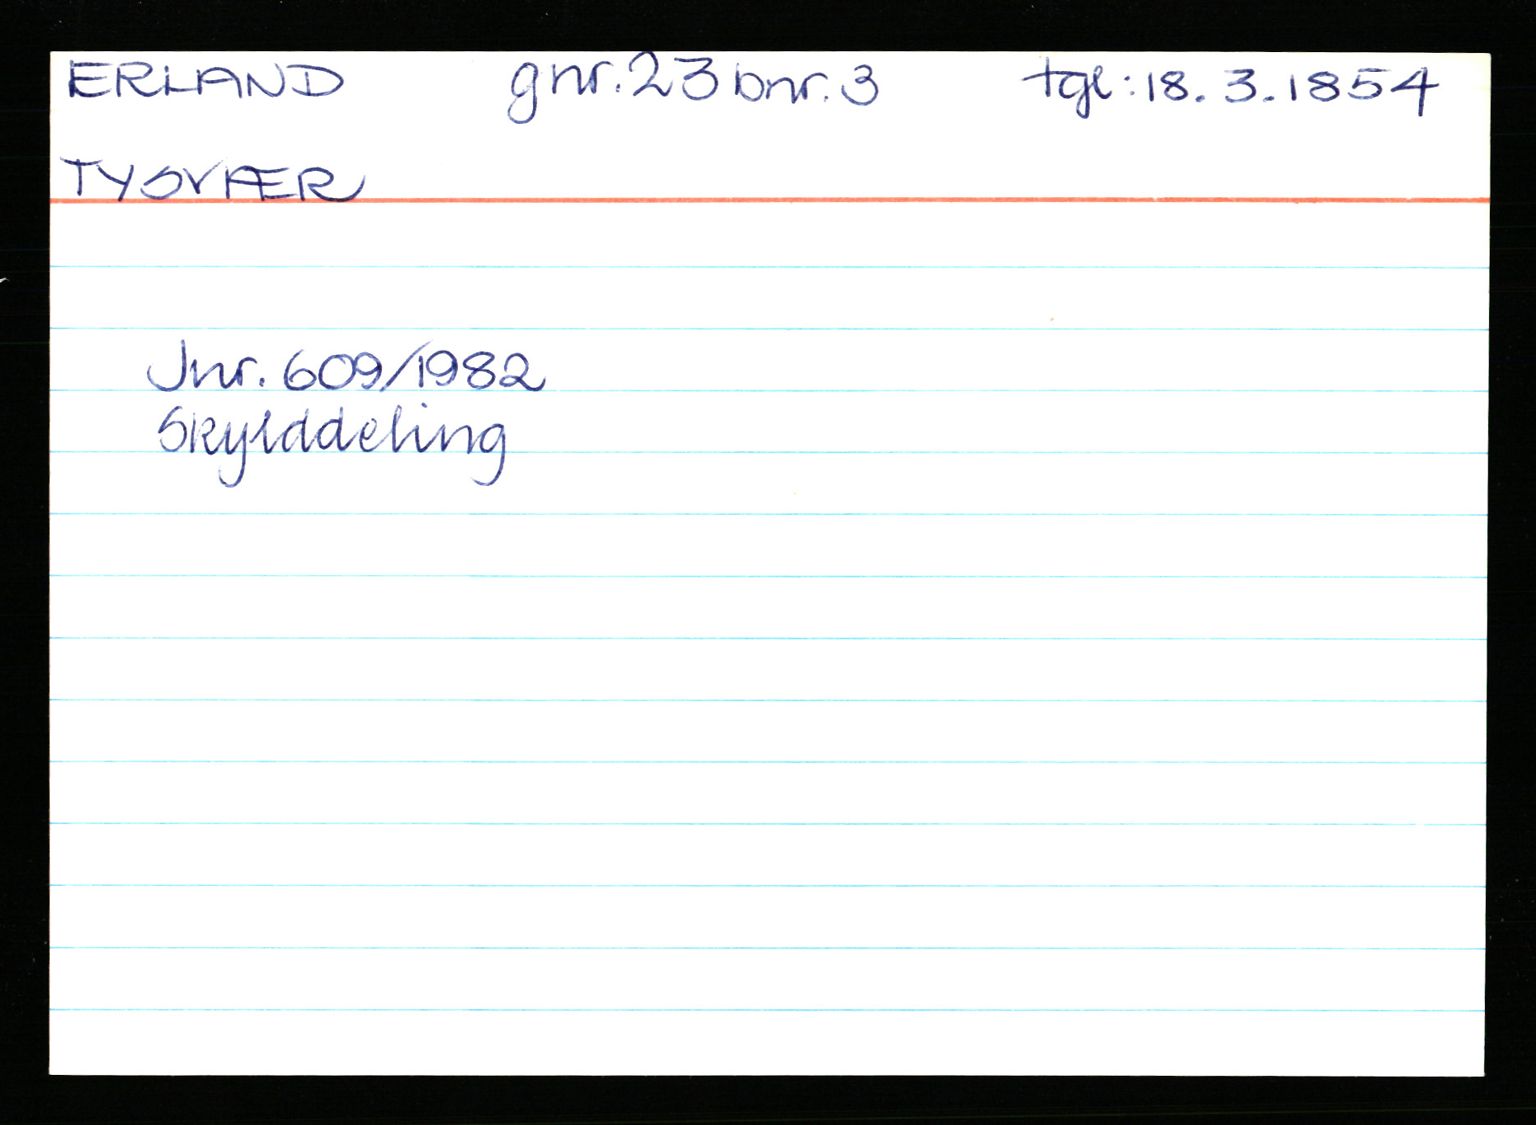 ERLAND gnr. 23 bnr. 3 tgl: 18. 3. 1854
TYSVÆR
Jnr. 609/1982
Skylddeling